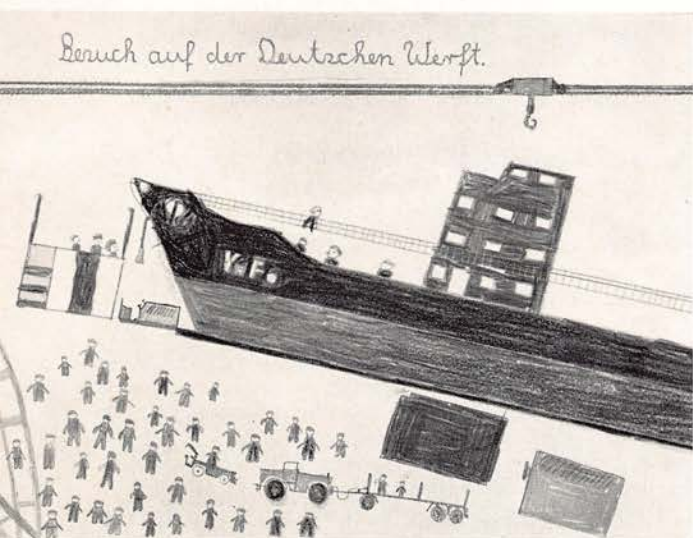 Besuch auf der Deutschen Werft.